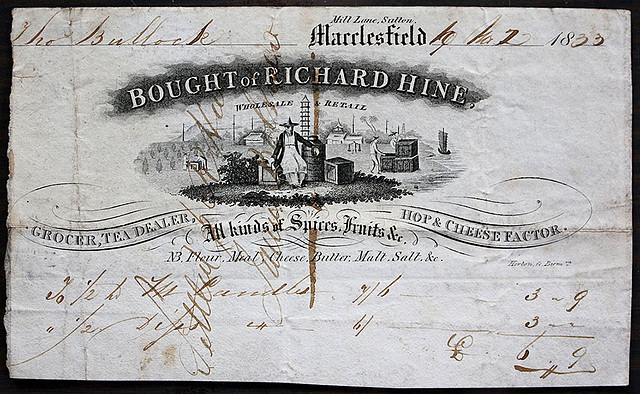 Mill Lane, Sutton.
Tho Bullock Macclesfield 19 1833
BOUGHT of RICHARD HINE,
WHOLESALE & RETAIL
GROCER, TEA DEALER, HOP & CHEESE FACTOR.
All kinds of Spices, Fruits &c.
NB. Flour, Meal, Cheese, Butter, Malt, Salt, &c.
To 1/2 Candles 7/6 3 - 9
" 1/2 Dips 6/ 3 -
£ 6 9
Settled